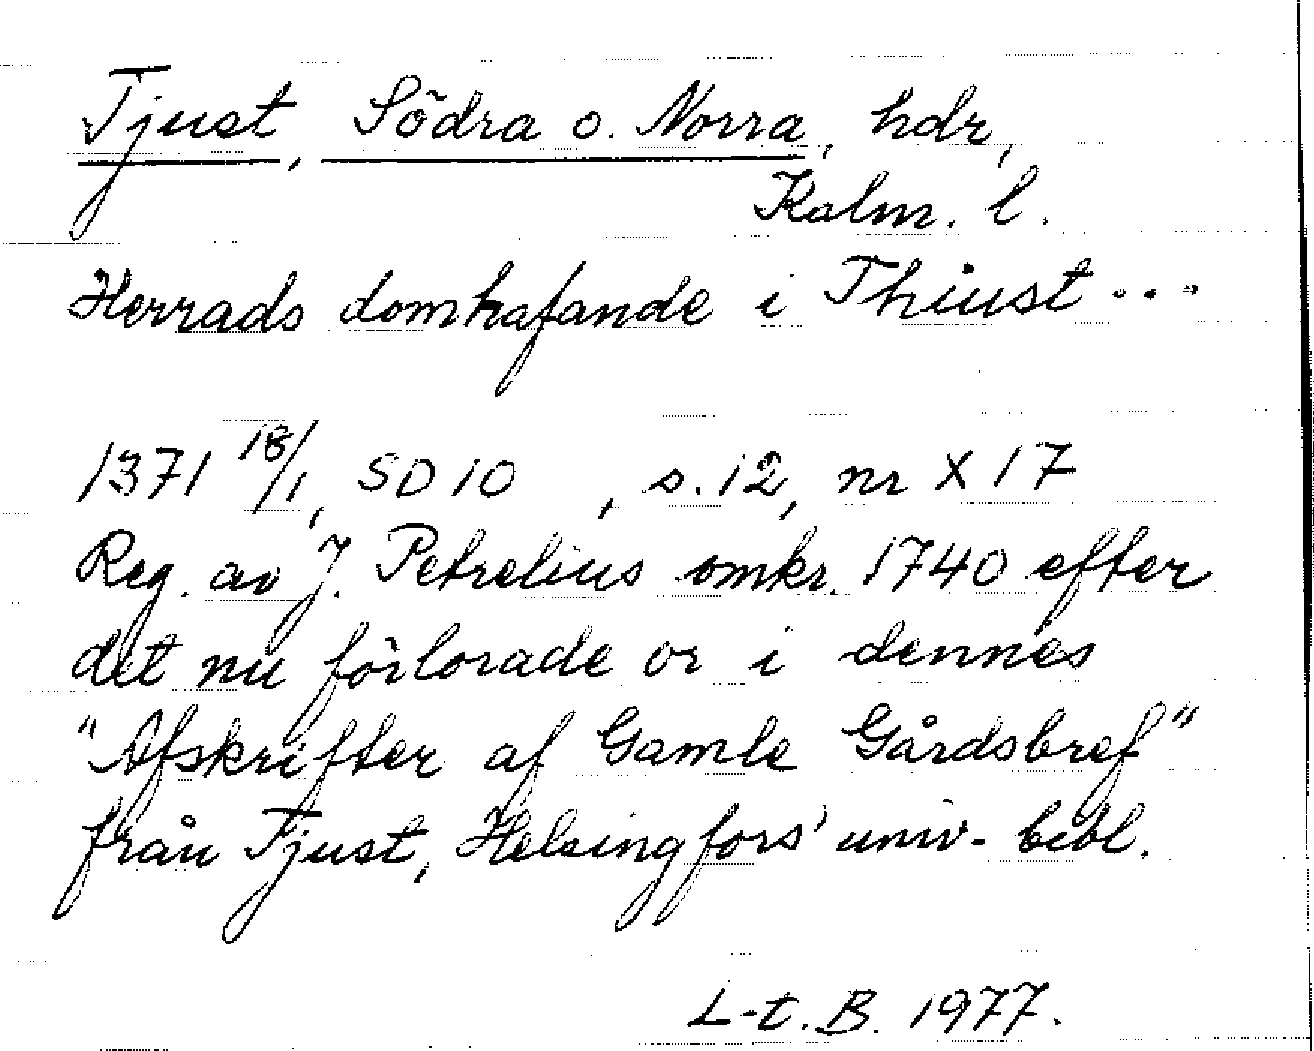 Tjust, Södra o. Norra, hdr,
Kalm. l.
Herrads domhafande i Thiust...
1371 18/1, SD 10 , s. 12, nr X 17
Reg. av J. Petrelius omkr. 1740 efter
det nu förlorade or i dennes
"Afskrifter af Gamle Gårdsbref"
från Tjust, Helsingfors' univ-bibl.
L-t. B. 1977.